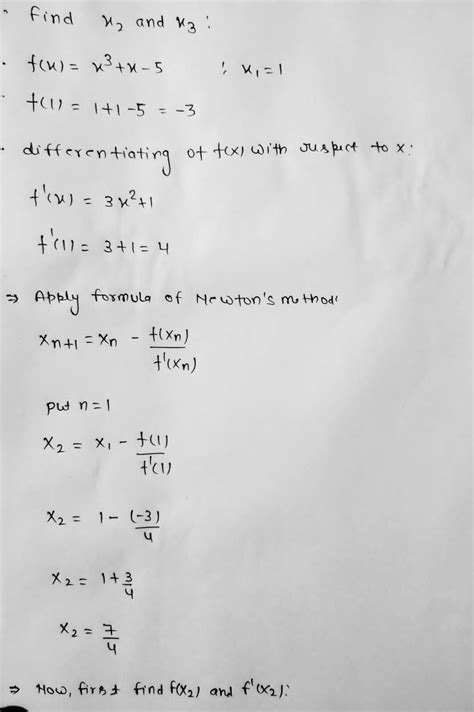 Find x₂ and x₃ :
f(x) = x³+x-5 ; x₁=1
f(1) = 1+1-5 = -3
differentiating of f(x) with respect to x:
f'(x) = 3x²+1
f'(1) = 3+1 = 4
⇒ Apply formula of Newton's method:
xₙ₊₁ = xₙ - f(xₙ)/f'(xₙ)
put n=1
x₂ = x₁ - f(1)/f'(1)
x₂ = 1 - (-3)/4
x₂ = 1+3/4
x₂ = 7/4
⇒ Now, first find f(x₂) and f'(x₂):